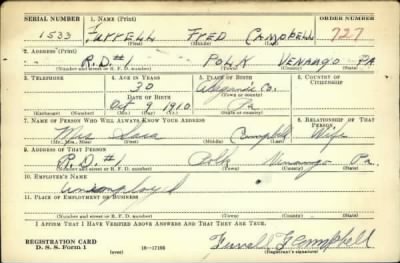 SERIAL NUMBER 1. Name (Print) ORDER NUMBER
1533 FERRELL FRED CAMPBELL 727
(First) (Middle) (Last)
2. Address (Print)
R.D.#1 POLK VENANGO PA
(Number and street or R. F. D. number) (Town) (County) (State)
3. Telephone 4. Age in Years 5. Place of Birth 6. Country of Citizenship
30 Co.
Date of Birth (Town or county)
Oct 9 1910 Pa
(Exchange) (Number) (Mo.) (Day) (Yr.) (State or country)
7. Name of Person Who Will Always Know Your Address 8. Relationship of That Person
Mrs Sara Campbell Wife
(Mr., Mrs., Miss) (First) (Middle) (Last)
9. Address of That Person
R.D.#1 Polk Venango Pa.
(Number and street or R. F. D. number) (Town) (County) (State)
10. Employer's Name
Unemployed
11. Place of Employment or Business
(Number and street or R. F. D. number) (Town) (County) (State)
I Affirm That I Have Verified Above Answers and That They Are True.
REGISTRATION CARD
D. S. S. Form 1 (over) 16—17105 Campbell